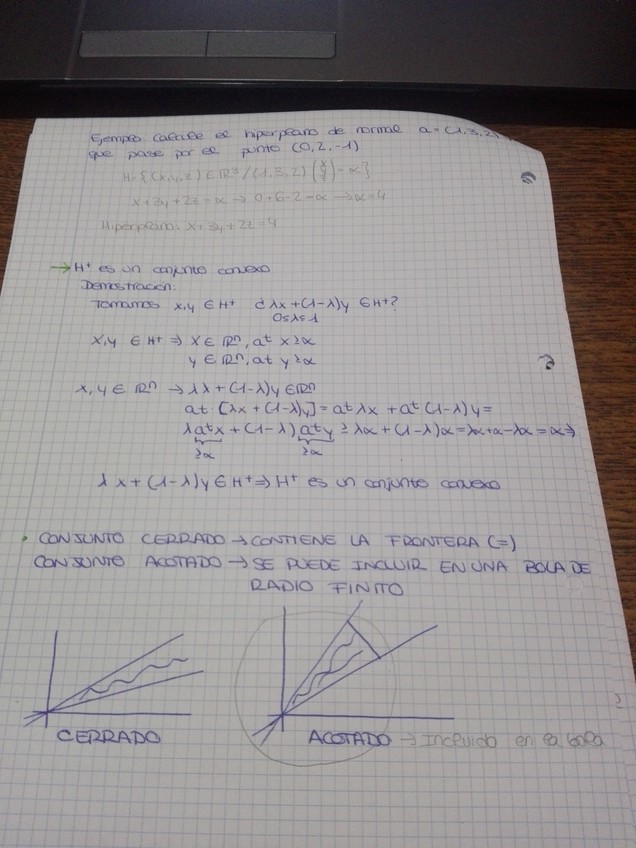 Ejemplo: calcule el hiperplano de normal a = (1,3,2),
que pase por el punto (0,2,-1)
H = {(x,y,z) ∈ ℝ³ / (1,3,2) (x y) = α}
x + 3y + 2z = α → 0 + 6 - 2 = α → α = 4
Hiperplano: x + 3y + 2z = 4
→ H⁺ es un conjunto convexo
Demostración:
Tomamos x,y ∈ H⁺ ¿ λx + (1-λ)y ∈ H⁺?
0≤λ≤1
x,y ∈ H⁺ ⇒ x ∈ ℝⁿ, aᵗ x ≥ α
y ∈ ℝⁿ, aᵗ y ≥ α
x,y ∈ ℝⁿ → λλ + (1-λ)y ∈ ℝⁿ
aᵗ · [λx + (1-λ)y] = aᵗ λx + aᵗ (1-λ)y =
λ aᵗx + (1-λ) aᵗy ≥ λα + (1-λ)α = λα + α - λα = α ⇒
≥α ≥α
λx + (1-λ)y ∈ H⁺ ⇒ H⁺ es un conjunto convexo
· CONJUNTO CERRADO → CONTIENE LA FRONTERA (=)
CONJUNTO ACOTADO → SE PUEDE INCLUIR EN UNA BOLA DE
RADIO FINITO
CERRADO
ACOTADO → Incluido en la bola